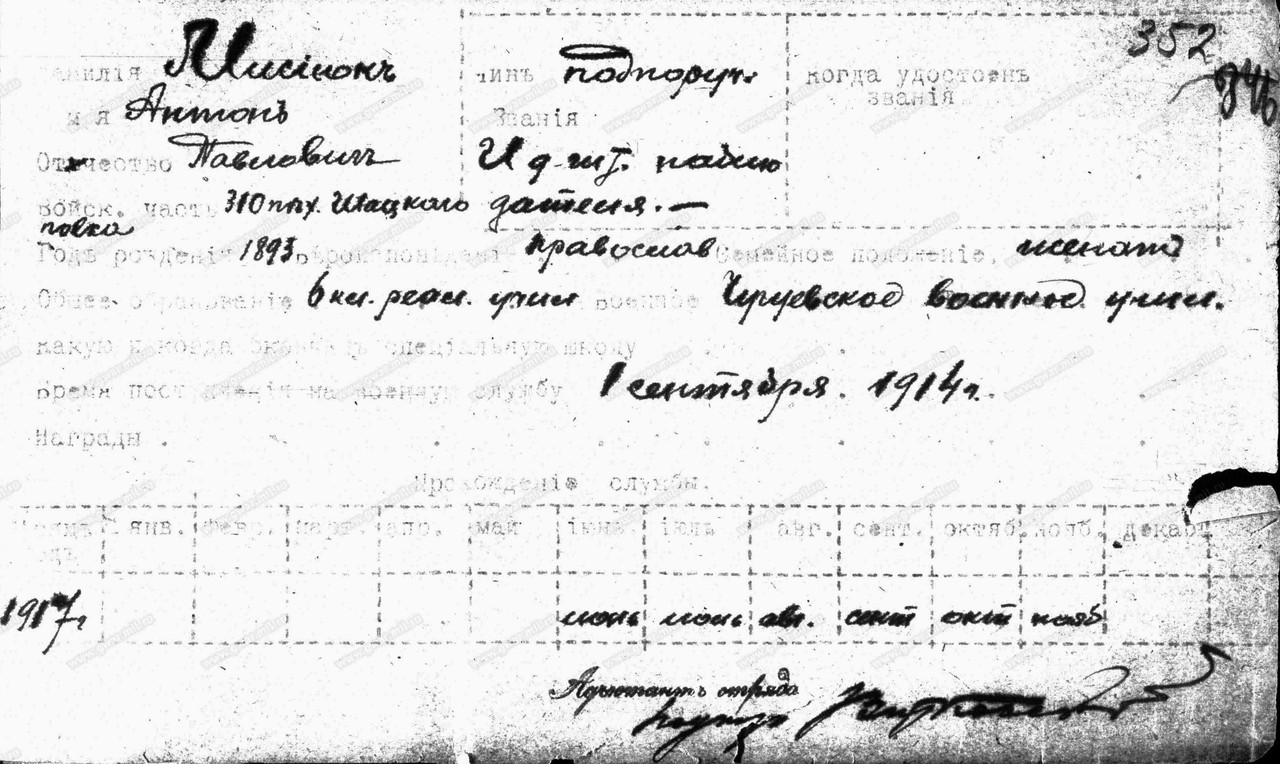 352
Фамилія Мисіюнъ чинъ подпоруч. когда удостоенъ
346
Имя Антонъ Званія званія
Отчество Павловичъ И д шт. наблю
Войск. часть 310 пѣх. Шацкаго дателя. —
полка
Годъ рожденія 1893 Вѣроисповѣданіе Православ Семейное положеніе, женатъ
Общее образованіе 6 кл. реал. учил Военное Чугуевское военное учил.
какую и когда окончилъ спеціальную школу
Время поступленія на военную службу 1 сентября. 1914 г.
Награды .
Прохожденіе службы.
янв. февр. март. апр. май іюнь іюль авг. сент. октяб. нояб. декабр
годъ
1917 г июнь июль авг. сент окт нояб
Адъютантъ отряда